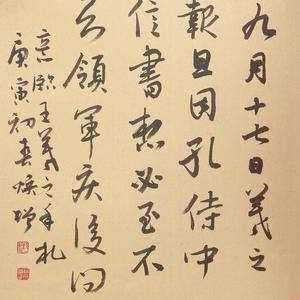 九月十七日羲之
報且因孔侍中
信書想必至不
知領軍疾後問
意臨王羲之手札
庚寅初春